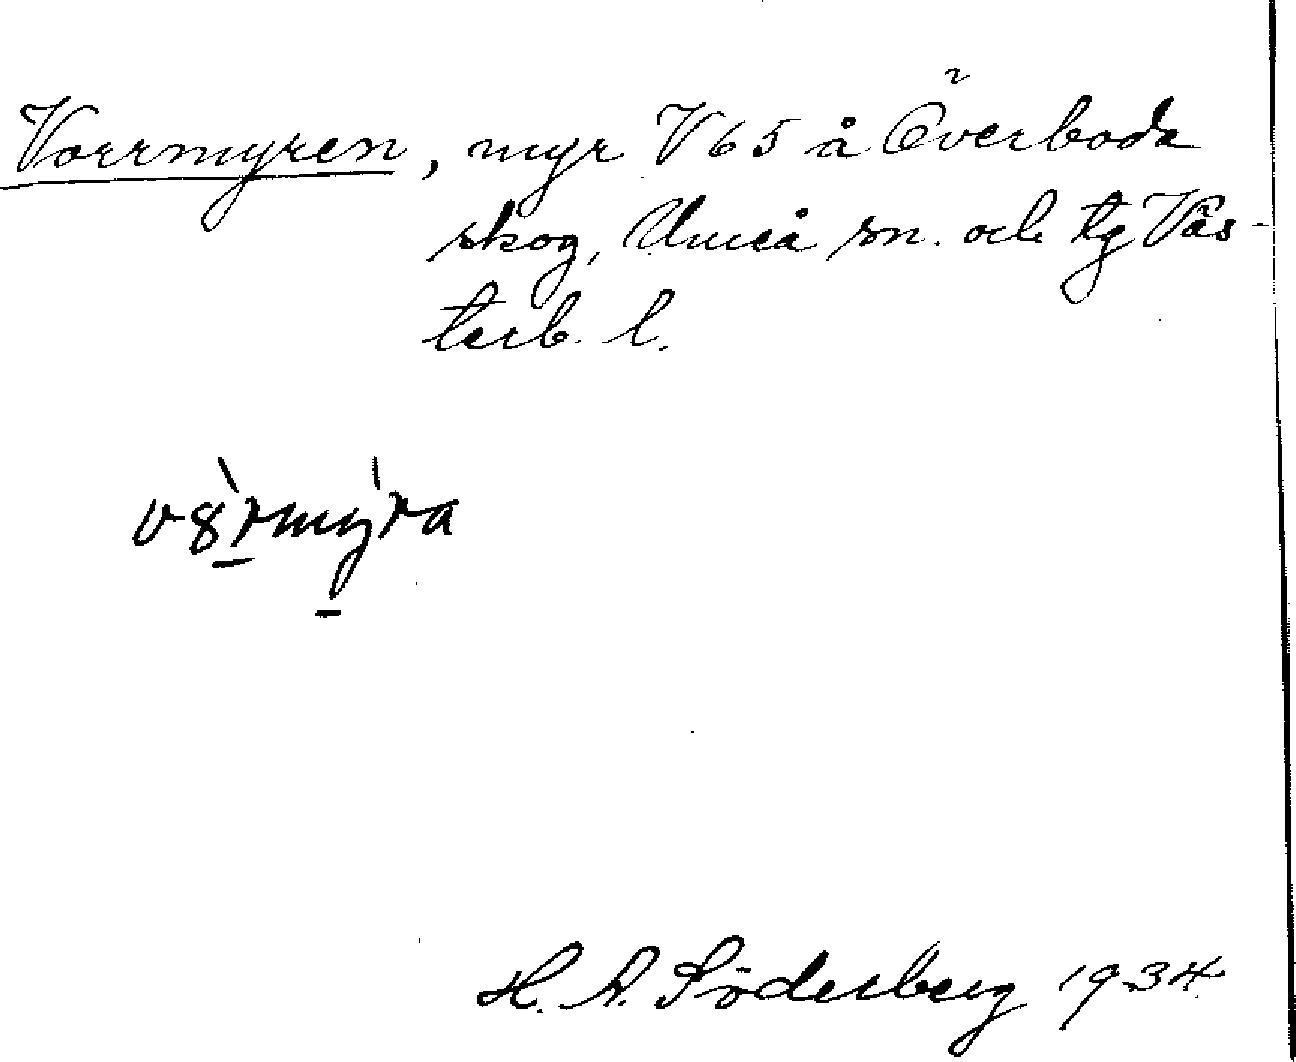 Vorrmyren, myr V 65 å Överboda
skog, Umeå sn. och tg Väs-
terb. l.
v8̀rmy̍ra
H. A. Söderberg 1934.